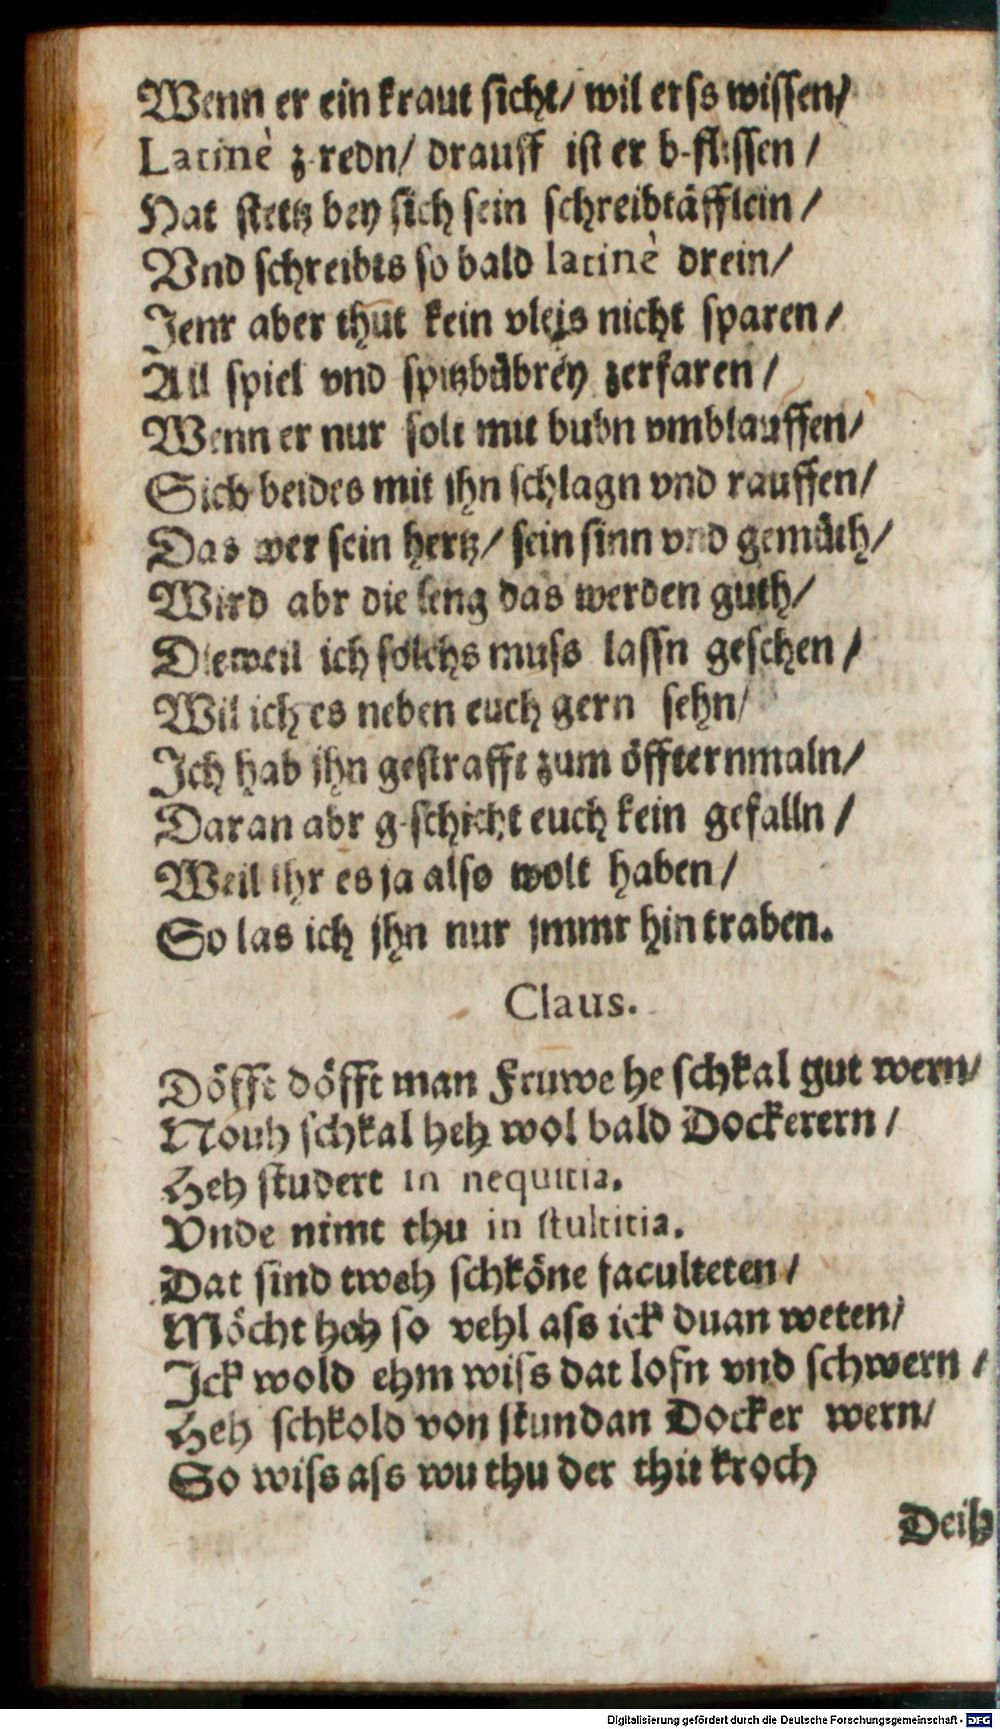 Wenn er ein kraut sicht/ wil erss wissen/
Latinè z-redn/ drauff ist er b-flissen /
Hat stettz bey sich sein schreibtäfflein /
Vnd schreibts so bald latinè drein/
Jenr aber thut kein vleis nicht sparen /
All spiel vnd spitzbübrey zerfaren /
Wenn er nur solt mit bubn vmblauffen/
Sich beides mit ihn schlagn vnd rauffen/
Das wer sein hertz/ sein sinn vnd gemüth/
Wird abr die leng das werden guth/
Dieweil ich solchs muss lassn geschen /
Wil ich es neben euch gern sehn/
Ich hab ihn gestrafft zum öffternmaln/
Daran abr g-schicht euch kein gefalln /
Weil ihr es ja also wolt haben/
So las ich jhn nur jmmr hin traben.
Claus.
Döfft döfft man Fruwe he schkal gut wern/
Nouh schkal heh wol bald Dockerern /
Heh studert in nequitia.
Vnde nimt thu in stultitia.
Dat sind tweh schköne faculteten /
Möcht heh so vehl ass ick duan weten/
Ick wold ehm wiss dat lofn vnd schwern /
Heh schkold von stundan Docker wern/
So wiss ass wu thu der thit kroch
Deih
Digitalisierung gefördert durch die Deutsche Forschungsgemeinschaft - DFG